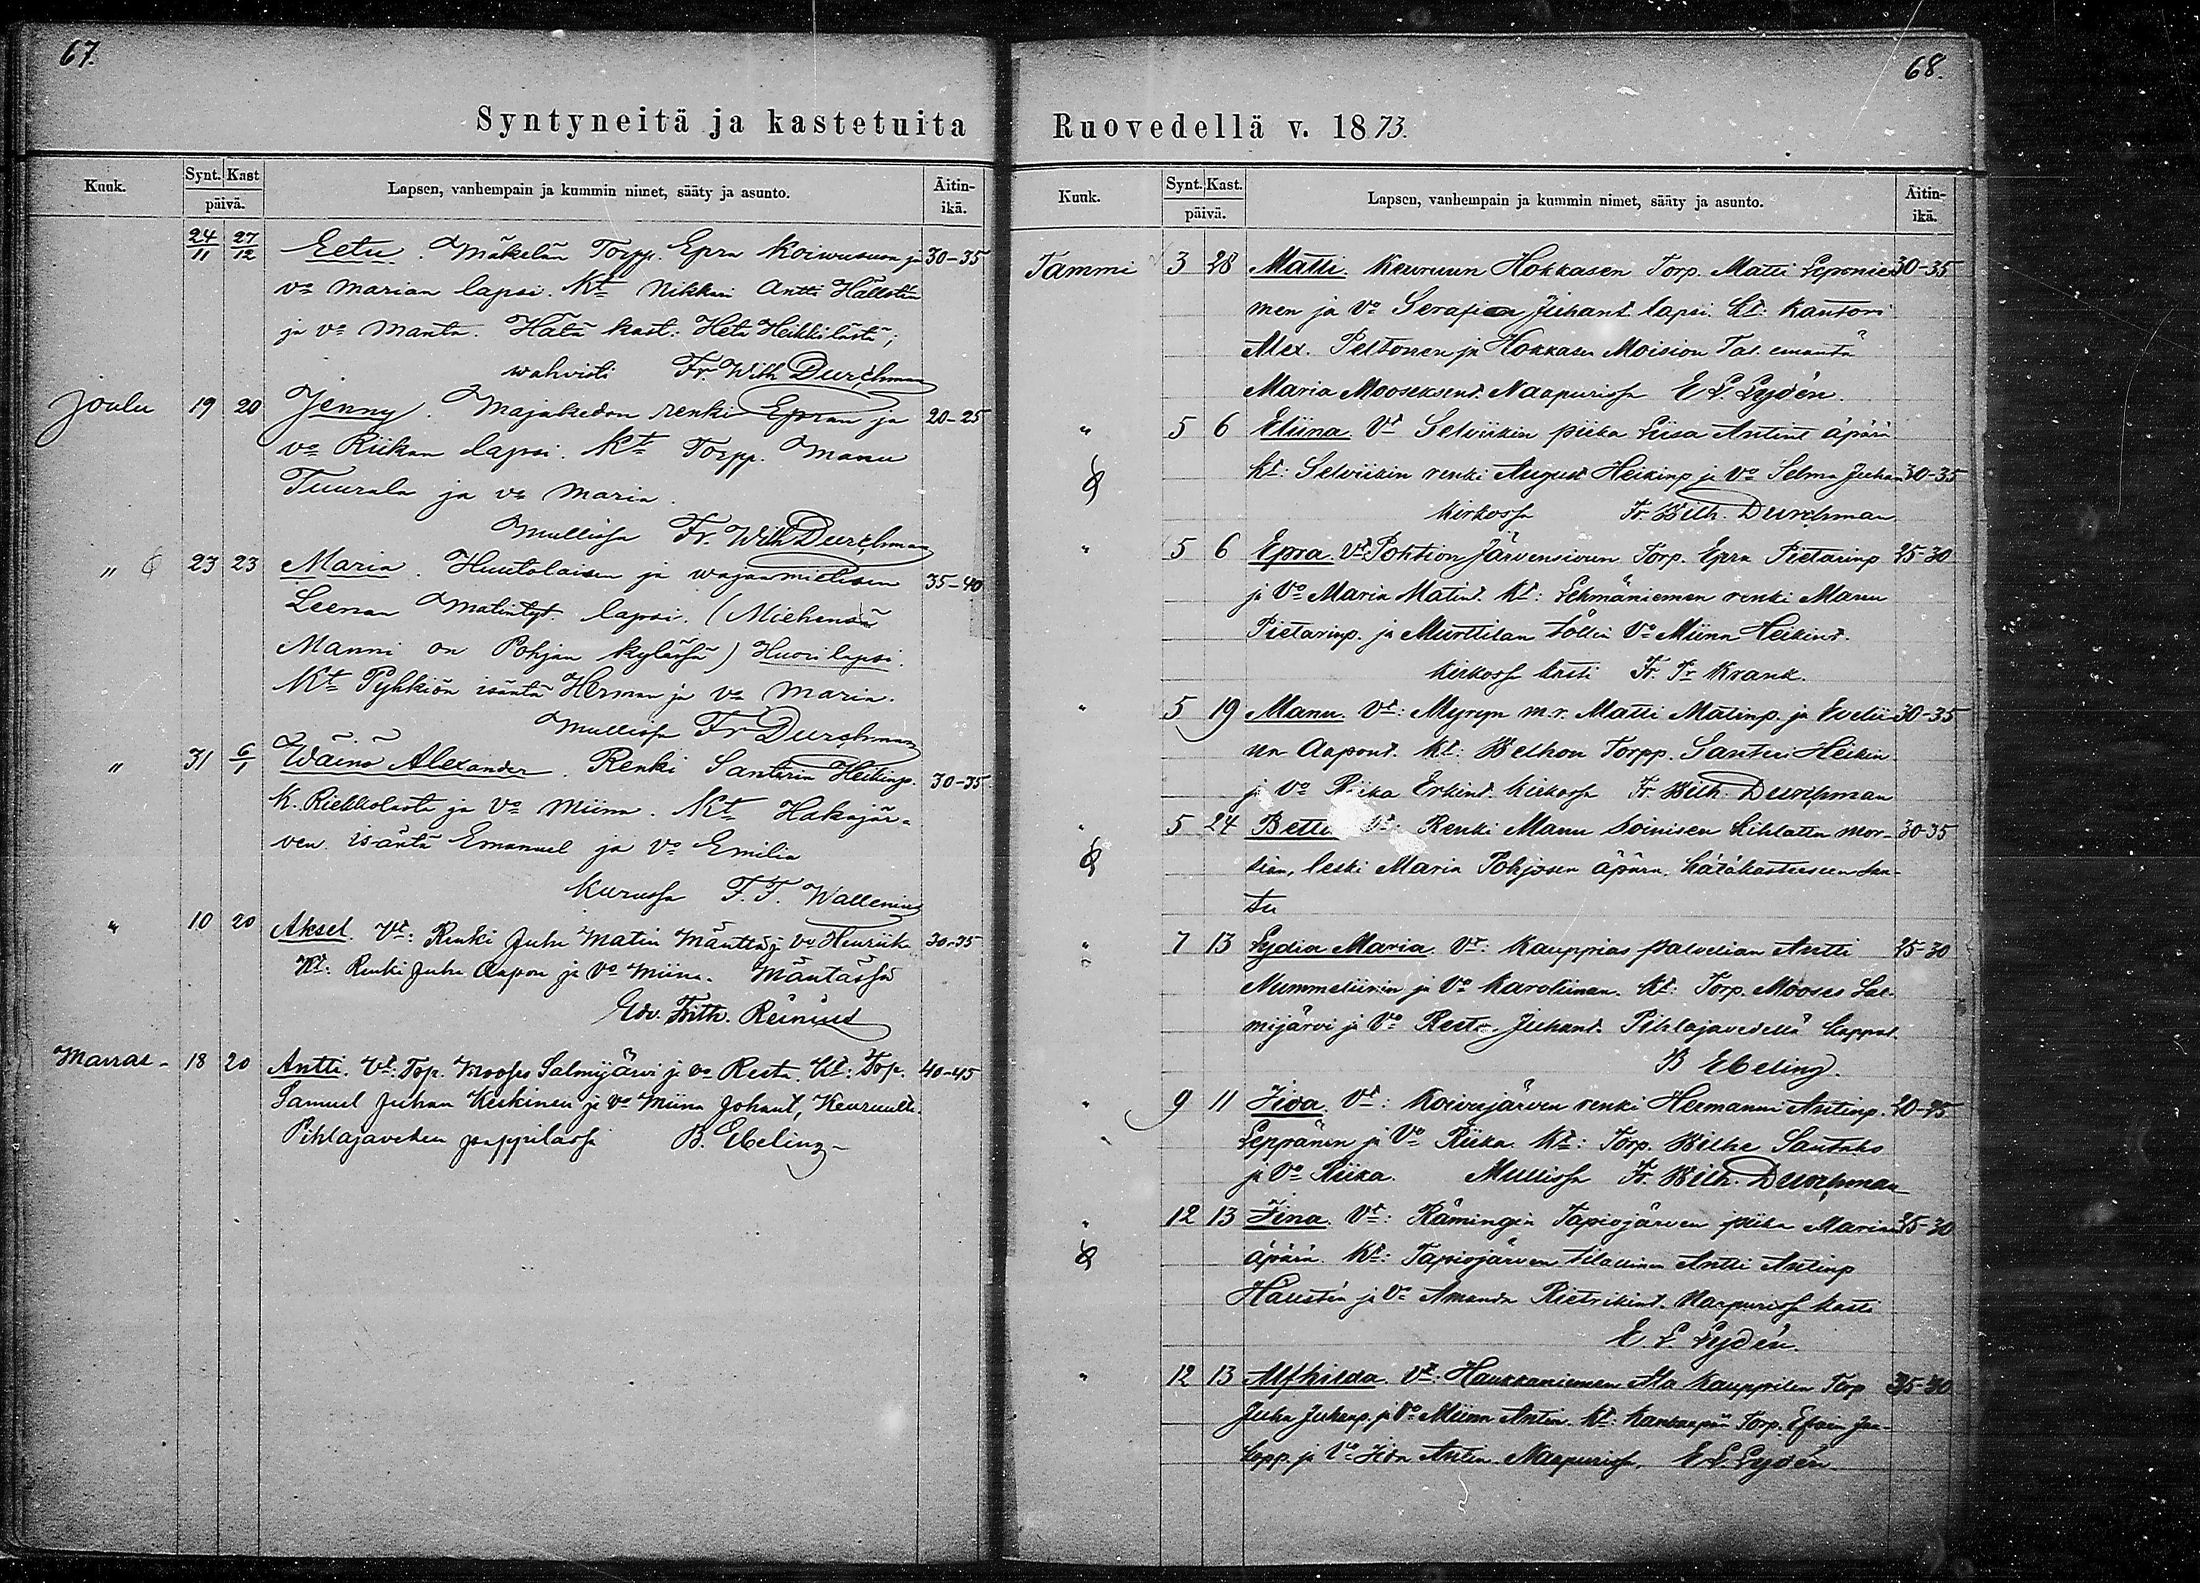 67.
Syntyneitä ja kastetuita
Kuuk.
Synt. Kast
päivä.
Lapsen, vanhempain ja kummin nimet, sääty ja asunto.
Äitin-
ikä.
24/11 27/12 Eetu. Mäkelän Torpp. Epra Koivusuon ja 30-35
vo Marian lapsi. Kt Nikkari Antti Hällstén
ja vo Manta. Hätä kast. Heta Heikkilästä;
wahvisti Fr. Wilh Durchman
Joulu 19 20 Jenny. Majakedon renki Epran ja 20-25
vo Riikan lapsi. Kt Torpp. Manu
Tuurala ja vo Maria.
Mullissa Fr. Wilh Durchman
" 23 23 Maria. Huutolaisen ja wajaamielisen 35-40
Leenan Matintyt. lapsi. (Miehensä
Manni on Pohjan kylässä) Huorilapsi.
Kt Pyhkiön isäntä Herman ja vo Maria.
Mullissa Fr Durchman
" 31 6/1 Wäinö Alexander. Renki Santerin Heikinp. 30-35
K. Riekkolasta ja Vo Miina. Kt Hakajär-
ven isäntä Emanuel ja Vo Emilia
Kurussa F. F. Wallenius
" 10 20 Aksel. Vt: Renki Juha Matin Mänttä ja vo Henriik 30-35
Kt: Renki Juha Aapon ja Vo Miina. Mäntässä
Edv. Frith. Reinius
Marras- 18 20 Antti. Vt: Top. Mooses Salmijärvi ja vo Resta. Kt: Top. 40-45
Samuel Juhan Keskinen ja vo Miina Johant, Keuruulla.
Pihlajaveden pappilassa B. Ebeling
68.
Ruovedellä v. 1873.
Kuuk.
Synt. Kast.
päivä.
Lapsen, vanhempain ja kummin nimet, sääty ja asunto.
Äitin-
ikä.
Tammi 3 28 Matti. Keuruun Hokkasen Torp. Matti Leponie 30-35
men ja Vo Serafia Juhant. lapsi. Kt: Kanttori
Alex. Peltonen ja Hokkasen Moision Tal. emäntä
Maria Mooseksent. Naapurissa E. L. Lydén.
" 5 6 Eliina Vt Selviikin piika Liisa Antint äpärä
Kt: Selviikin renki August Heikinp ja Vo Selma Juhan 30-35
Kirkossa Fr. Wilh. Durchman
" 5 6 Epra. Vt: Pohtion Järvensivun Torp. Epra Pietarinp 25-30
ja Vo Maria Matint. Kt: Lehmäniemen renki Manu
Pietarinp. ja Murttilan Vo Miina Heikint.
Kirkossa kasti Fr. Krank.
" 5 19 Manu. Vt: Myryn m.r. Matti Matinp. ja Eveli 30-35
nen Aapont. Kt: Torpp. Santeri Heikin
ja Vo Riika Erkint. Kirkossa Fr Wilh. Durchman
" 5 24 Vt: Renki Manu Soinisen mor- 30-35
sian, leski Maria Pohjosen äpärä. hätäkasteeseen
" 7 13 Lydia Maria. Vt: Kauppias palvelian Antti 25-30
Nummeliinin ja Vo Karoliinan. Kt: Torp. Mooses Sal-
mijärvi ja Vo Resta Juhant. Pihlajavedellä
B Ebeling.
" 9 11 Iida. Vt: Koivujärven renki Hermanni Antinp. 20-25
Leppänen ja Vo Riika. Kt: Torp. Wilhe
ja Vo Riika. Mullissa Fr. Wilh. Durchman
" 12 13 Iina. Vt: Rämingin Tapiojärven piika Maria 25-30
äpärä. Kt: Tapiojärven tilallinen Antti Antinp
ja Vo Amanda Naapurissa kasti
E. L. Lydén.
" 12 13 Alfhilda. Vt: Haukkaniemen Ala Kauppilan Torp 35-40
Juha Juhanp. ja Vo Miina Antin. Kt: Torp. Efraim Jaa-
kopp. ja Vo Iida Antin. Naapurissa. E. L. Lydén